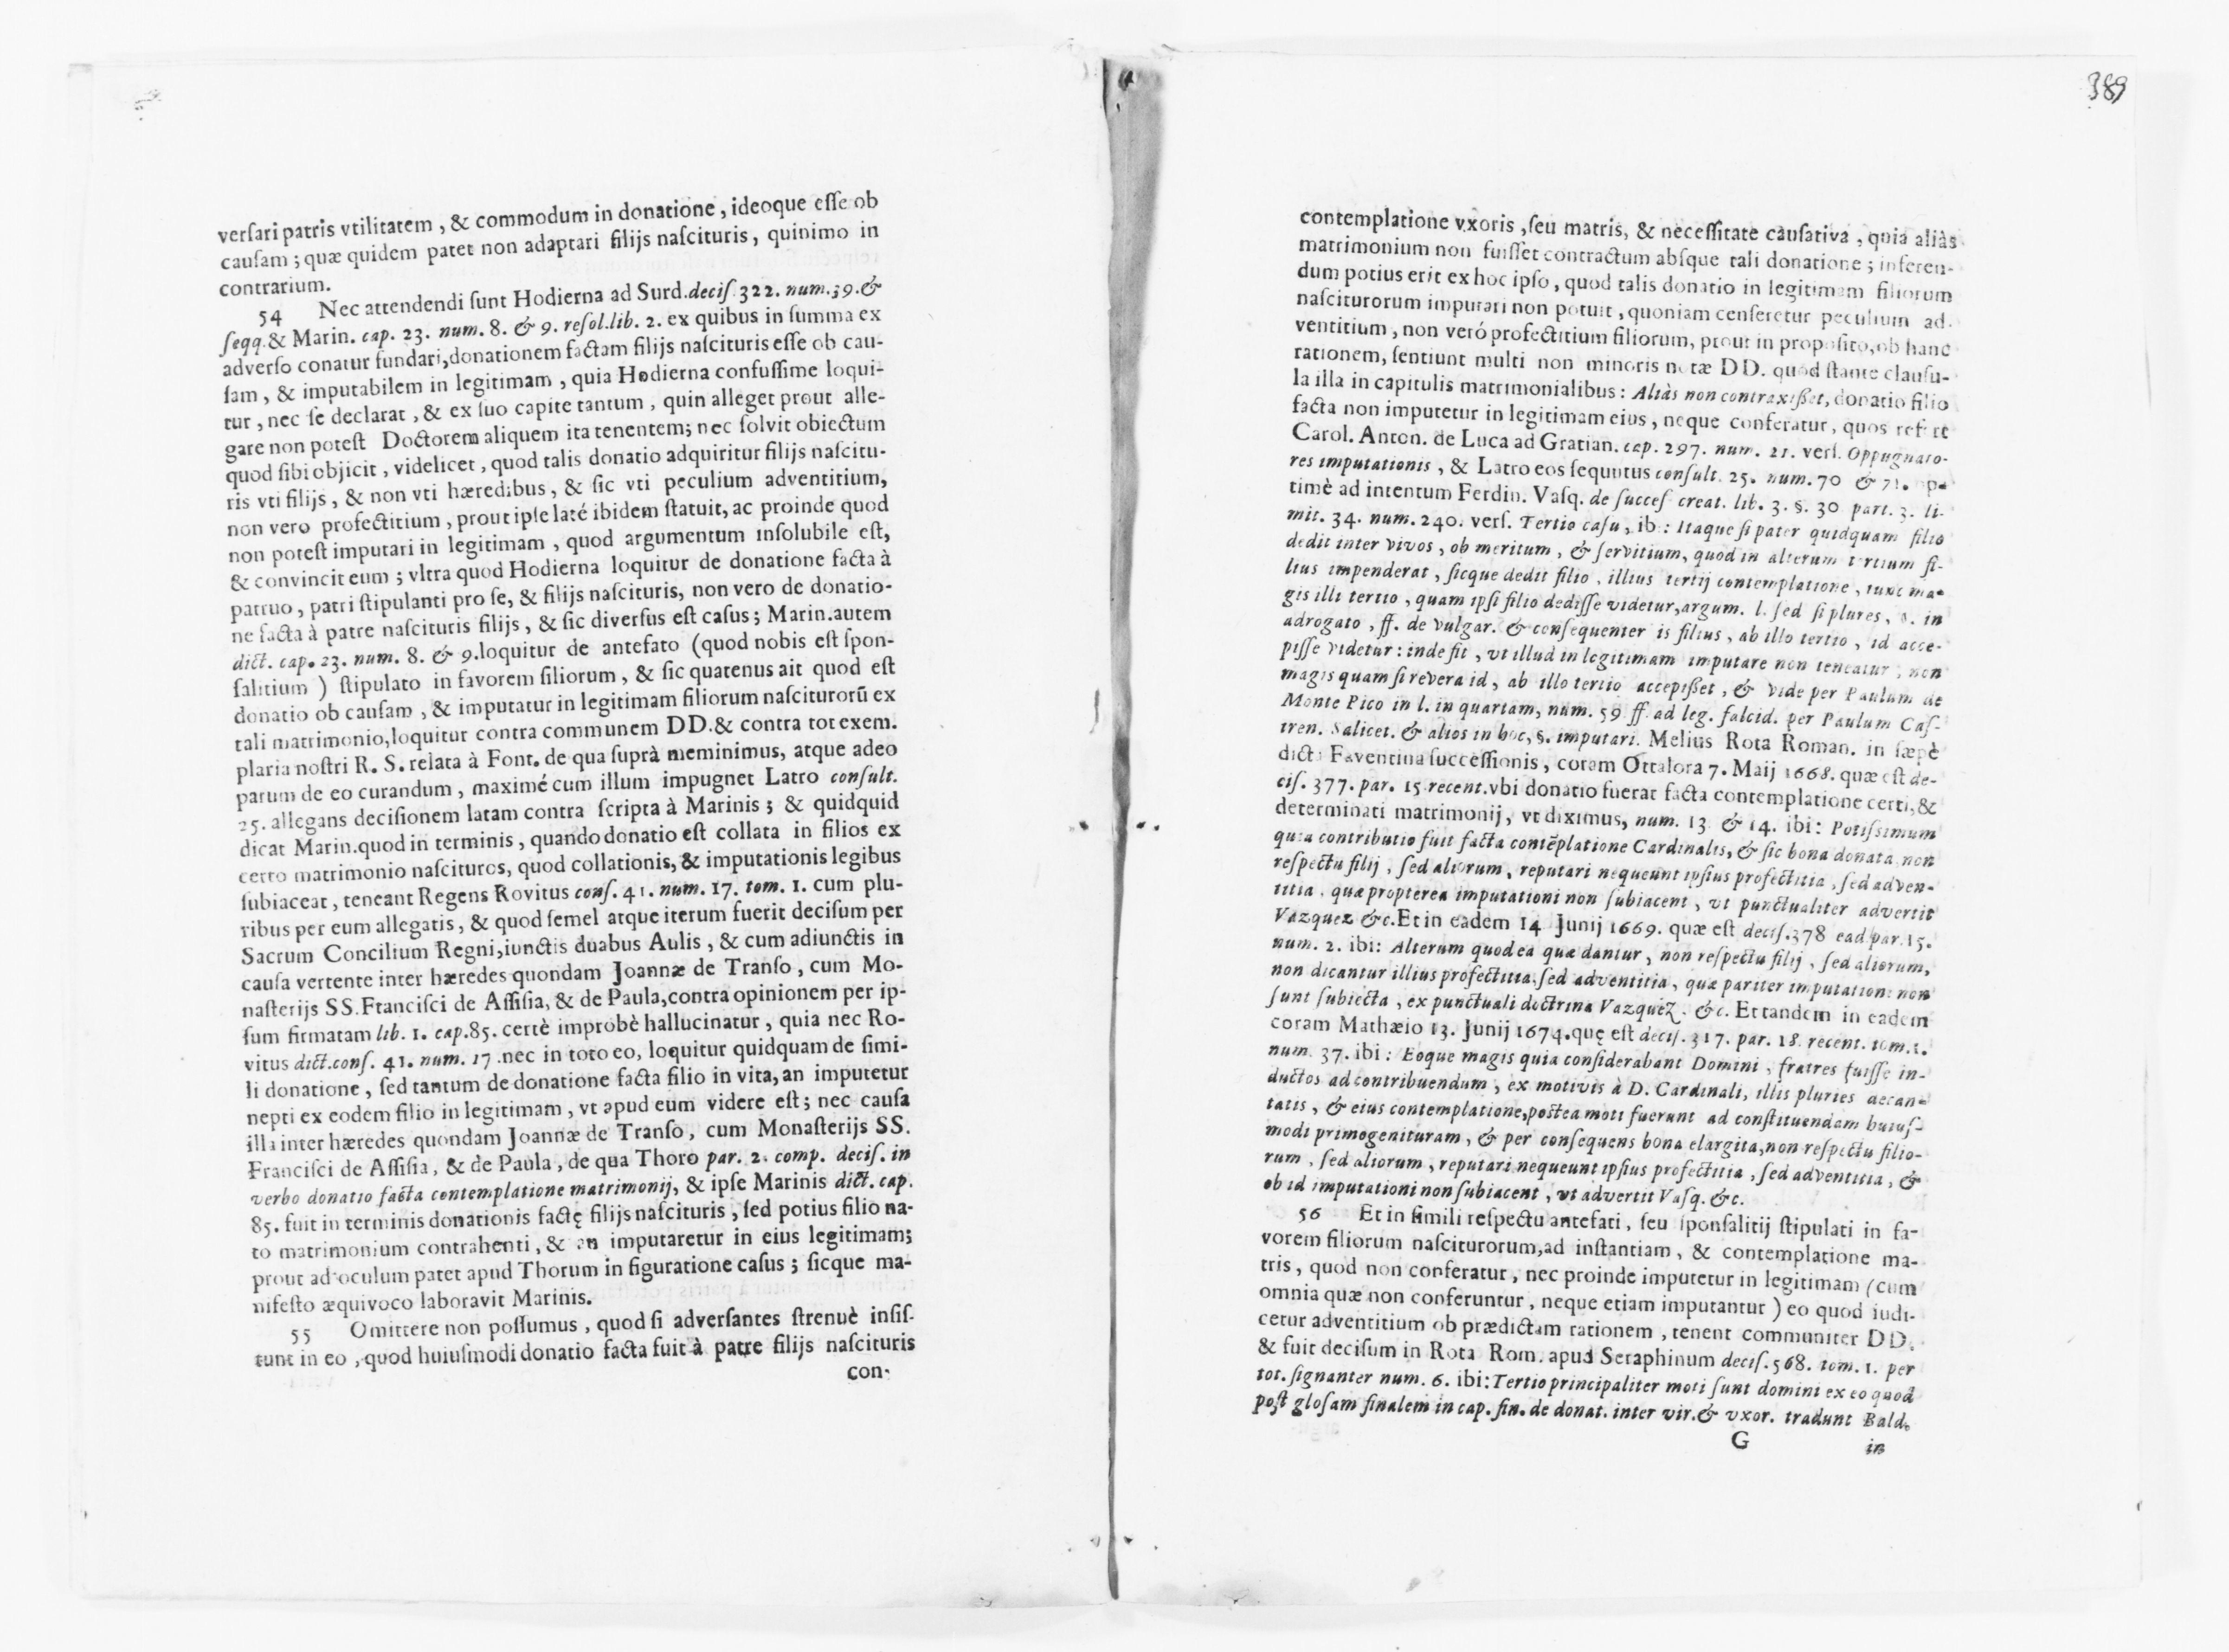 versari patris vtilitatem, & commodum in donatione, ideoque esse ob
causam; quæ quidem patet non adaptari filijs nascituris, quinimo in
contrarium.
54 Nec attendendi sunt Hodierna ad Surd.decis.322. num.39.&
seqq.& Marin. cap. 23. num. 8. & 9. resol.lib. 2. ex quibus in summa ex
adverso conatur fundari,donationem factam filijs nascituris esse ob cau-
sam, & imputabilem in legitimam, quia Hodierna confussime loqui-
tur, nec se declarat, & ex suo capite tantum, quin alleget prout alle-
gare non potest Doctorem aliquem ita tenentem; nec solvit obiectum
quod sibi objicit, videlicet, quod talis donatio adquiritur filijs nascitu-
ris vti filijs, & non vti hæredibus, & sic vti peculium adventitium,
non vero profectitium, prout ipse laté ibidem statuit, ac proinde quod
non potest imputari in legitimam, quod argumentum insolubile est,
& convincit eum; vltra quod Hodierna loquitur de donatione facta à
patruo, patri stipulanti pro se, & filijs nascituris, non vero de donatio-
ne facta à patre nascituris filijs, & sic diversus est casus; Marin.autem
dict. cap. 23. num. 8. & 9.loquitur de antefato (quod nobis est spon-
salitium) stipulato in favorem filiorum, & sic quatenus ait quod est
donatio ob causam, & imputatur in legitimam filiorum nasciturorū ex
tali matrimonio,loquitur contra communem DD.& contra tot exem.
plaria nostri R. S. relata à Font. de qua suprà meminimus, atque adeo
parum de eo curandum, maximé cum illum impugnet Latro consult.
25. allegans decisionem latam contra scripta à Marinis; & quidquid
dicat Marin.quod in terminis, quando donatio est collata in filios ex
certo matrimonio nascituros, quod collationis, & imputationis legibus
subiaceat, teneant Regens Rovitus cons. 41. num. 17. tom. 1. cum plu-
ribus per eum allegatis, & quod semel atque iterum fuerit decisum per
Sacrum Concilium Regni,iunctis duabus Aulis, & cum adiunctis in
causa vertente inter hæredes quondam Joannæ de Transo, cum Mo-
nasterijs SS.Francisci de Assisia, & de Paula,contra opinionem per ip-
sum firmatam lib. 1. cap.85. certè improbè hallucinatur, quia nec Ro-
vitus dict.cons. 41. num. 17.nec in toto eo, loquitur quidquam de simi-
li donatione, sed tantum de donatione facta filio in vita, an imputetur
nepti ex eodem filio in legitimam, vt apud eum videre est; nec causa
illa inter hæredes quondam Joannæ de Transo, cum Monasterijs SS.
Francisci de Assisia, & de Paula, de qua Thoro par. 2. comp. decis. in
verbo donatio facta contemplatione matrimonij, & ipse Marinis dict. cap.
85. fuit in terminis donationis factę filijs nascituris, sed potius filio na-
to matrimonium contrahenti, & an imputaretur in eius legitimam;
prout ad oculum patet apud Thorum in figuratione casus; sicque ma-
nifesto æquivoco laboravit Marinis.
55 Omittere non possumus, quod si adversantes strenuè insis-
tunt in eo, quod huiusmodi donatio facta fuit à patre filijs nascituris
con-
389
contemplatione vxoris, seu matris, & necessitate causativa, quia aliàs
matrimonium non fuisset contractum absque tali donatione; inferen-
dum potius erit ex hoc ipso, quod talis donatio in legitimam filiorum
nasciturorum imputari non potuit, quoniam censeretur peculium ad-
ventitium, non veró profectitium filiorum, prout in proposito,ob hanc
rationem, sentiunt multi non minoris notæ DD. quód stante clausu-
la illa in capitulis matrimonialibus: Aliàs non contraxisset, donatio filio
facta non imputetur in legitimam eius, neque conferatur, quos refert
Carol. Anton. de Luca ad Gratian. cap. 297. num. 21. vers. Oppugnato-
res imputationis, & Latro eos sequutus consult. 25. num. 70 & 71. op-
timè ad intentum Ferdin. Vasq. de succes. creat. lib. 3. §. 30 part. 3. li-
mit. 34. num. 240. vers. Tertio casu, ib: Itaque si pater quidquam filio
dedit inter vivos, ob meritum, & servitium, quod in alterum tertium fi-
lius impenderat, sicque dedit filio, illius tertij contemplatione, tunc ma-
gis illi tertio, quam ipsi filio dedisse videtur,argum. l. sed si plures, §. in
adrogato, ff. de vulgar. & consequenter is filius, ab illo tertio, id acce-
pisse videtur: inde fit, vt illud in legitimam imputare non teneatur, non
magis quam si revera id, ab illo tertio accepisset, & vide per Paulum de
Monte Pico in l. in quartam, num. 59 ff. ad leg. falcid. per Paulum Cas-
tren. Salicet. & alios in hoc, §. imputari. Melius Rota Roman. in sæpè
dicta Faventina successionis, coram Ottalora 7. Maij 1668. quæ est de-
cis. 377. par. 15.recent.vbi donatio fuerat facta contemplatione certi, &
determinati matrimonij, vt diximus, num. 13. & 14. ibi: Potissimum
quia contributio fuit facta contēplatione Cardinalis, & sic bona donata non
respectu filij, sed aliorum, reputari nequeunt ipsius profectitia, sed adven-
titia, quæ propterea imputationi non subiacent, vt punctualiter advertit
Vazquez &c.Et in eadem 14 Junij 1669. quæ est decis.378 ead par.15.
num. 2. ibi: Alterum quod ea quæ dantur, non respectu filij, sed aliorum,
non dicantur illius profectitia,sed adventitia, quæ pariter imputationi non
sunt subiecta, ex punctuali doctrina Vazquez. &c. Et tandem in eadem
coram Mathæio 13. Junij 1674.quę est decis. 317. par. 18. recent. tom.1.
num. 37. ibi: Eoque magis quia considerabant Domini, fratres fuisse in-
ductos ad contribuendum, ex motivis à D. Cardinali, illis pluries decan-
tatis, & eius contemplatione,postea moti fuerunt ad constituendam huius-
modi primogenituram, & per consequens bona elargita,non respectu filio-
rum, sed aliorum, reputari nequeunt ipsius profectitia, sed adventitia, &
ob id imputationi non subiacent, vt advertit Vasq. &c.
56 Et in simili respectu antefati, seu sponsalitij stipulati in fa-
vorem filiorum nasciturorum,ad instantiam, & contemplatione ma-
tris, quod non conferatur, nec proinde imputetur in legitimam (cum
omnia quæ non conferuntur, neque etiam imputantur) eo quod iudi-
cetur adventitium ob prædictam rationem, tenent communiter DD.
& fuit decisum in Rota Rom. apud Seraphinum decis.568. tom. 1. per
tot. signanter num. 6. ibi:Tertio principaliter moti sunt domini ex eo quod
post glosam finalem in cap. fin. de donat. inter vir.& vxor. tradunt Bald.
G in